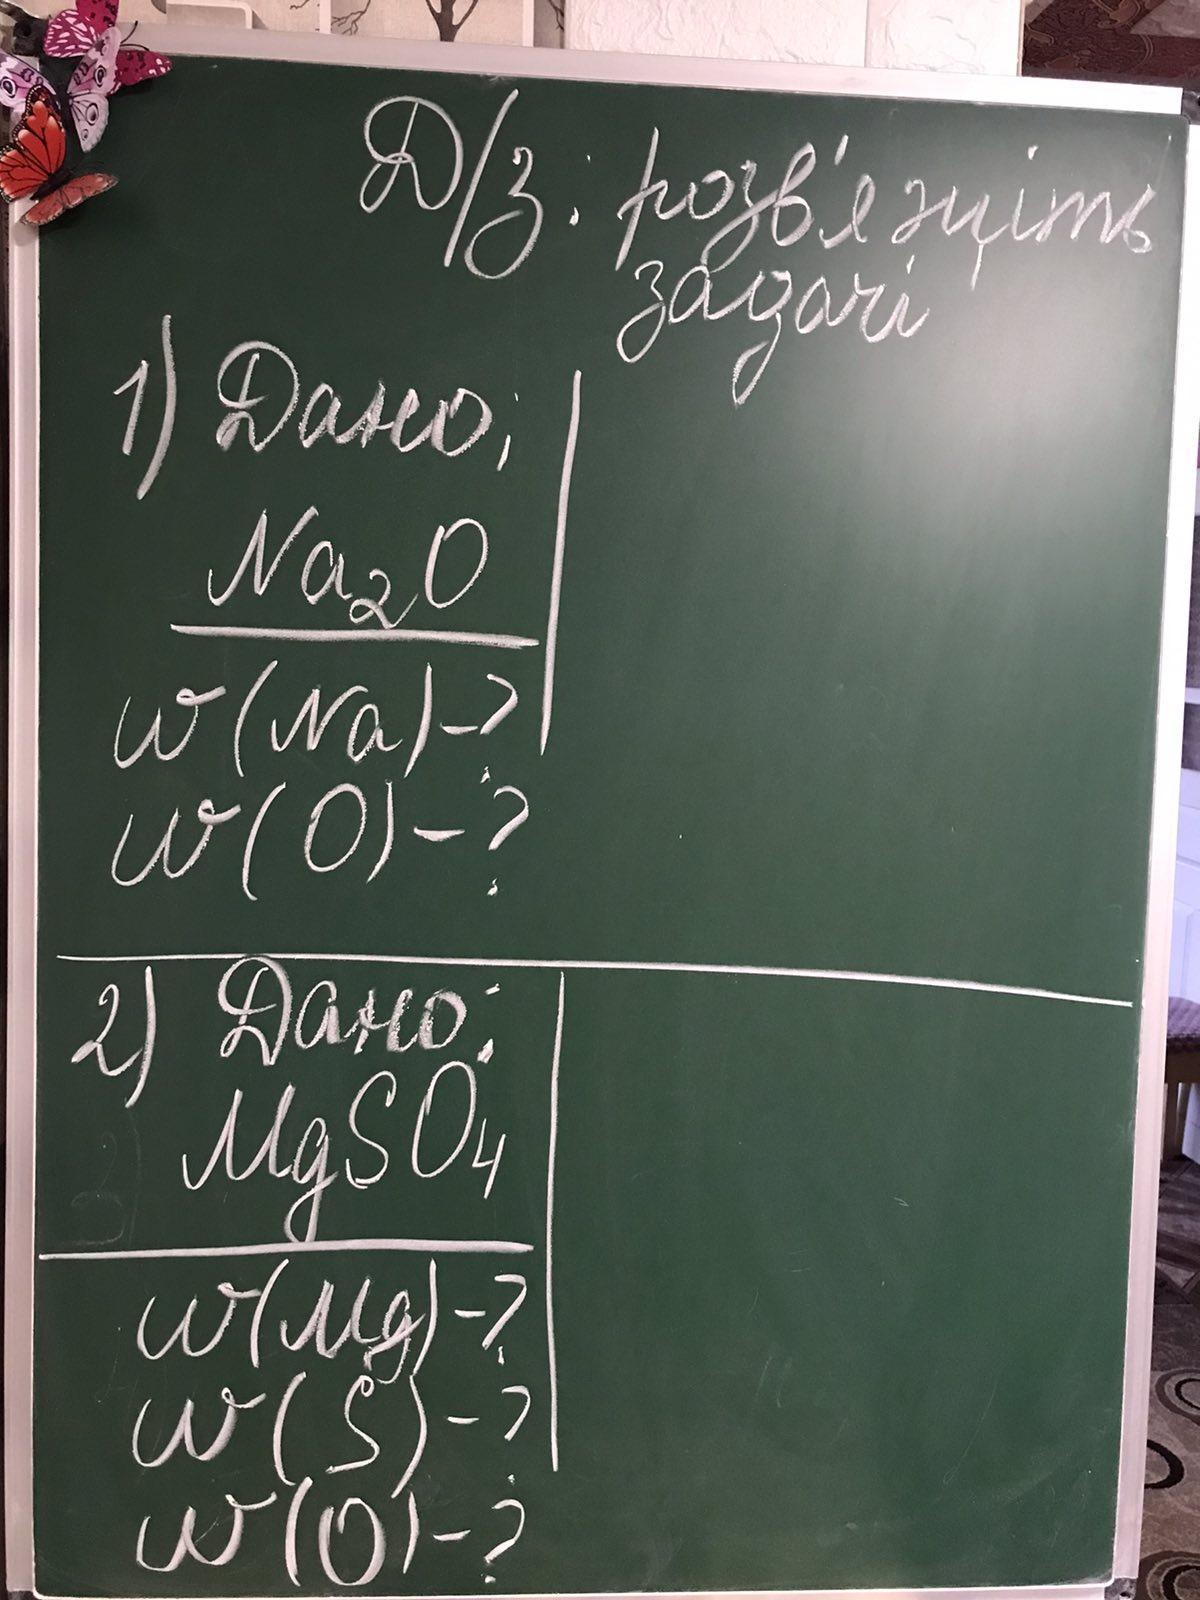 Д/З: розв'яжіть
задачі
1) Дано:
Na₂O
w(Na)-?
w(O)-?
2) Дано:
MgSO₄
w(Mg)-?
w(S)-?
w(O)-?